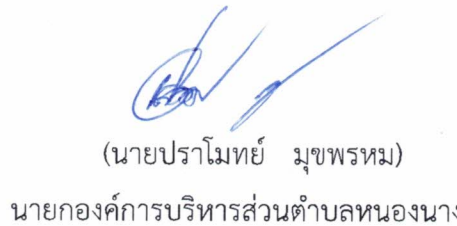 (นายปราโมทย์ มุขพรหม)
นายกองค์การบริหารส่วนตำบลหนองนาง